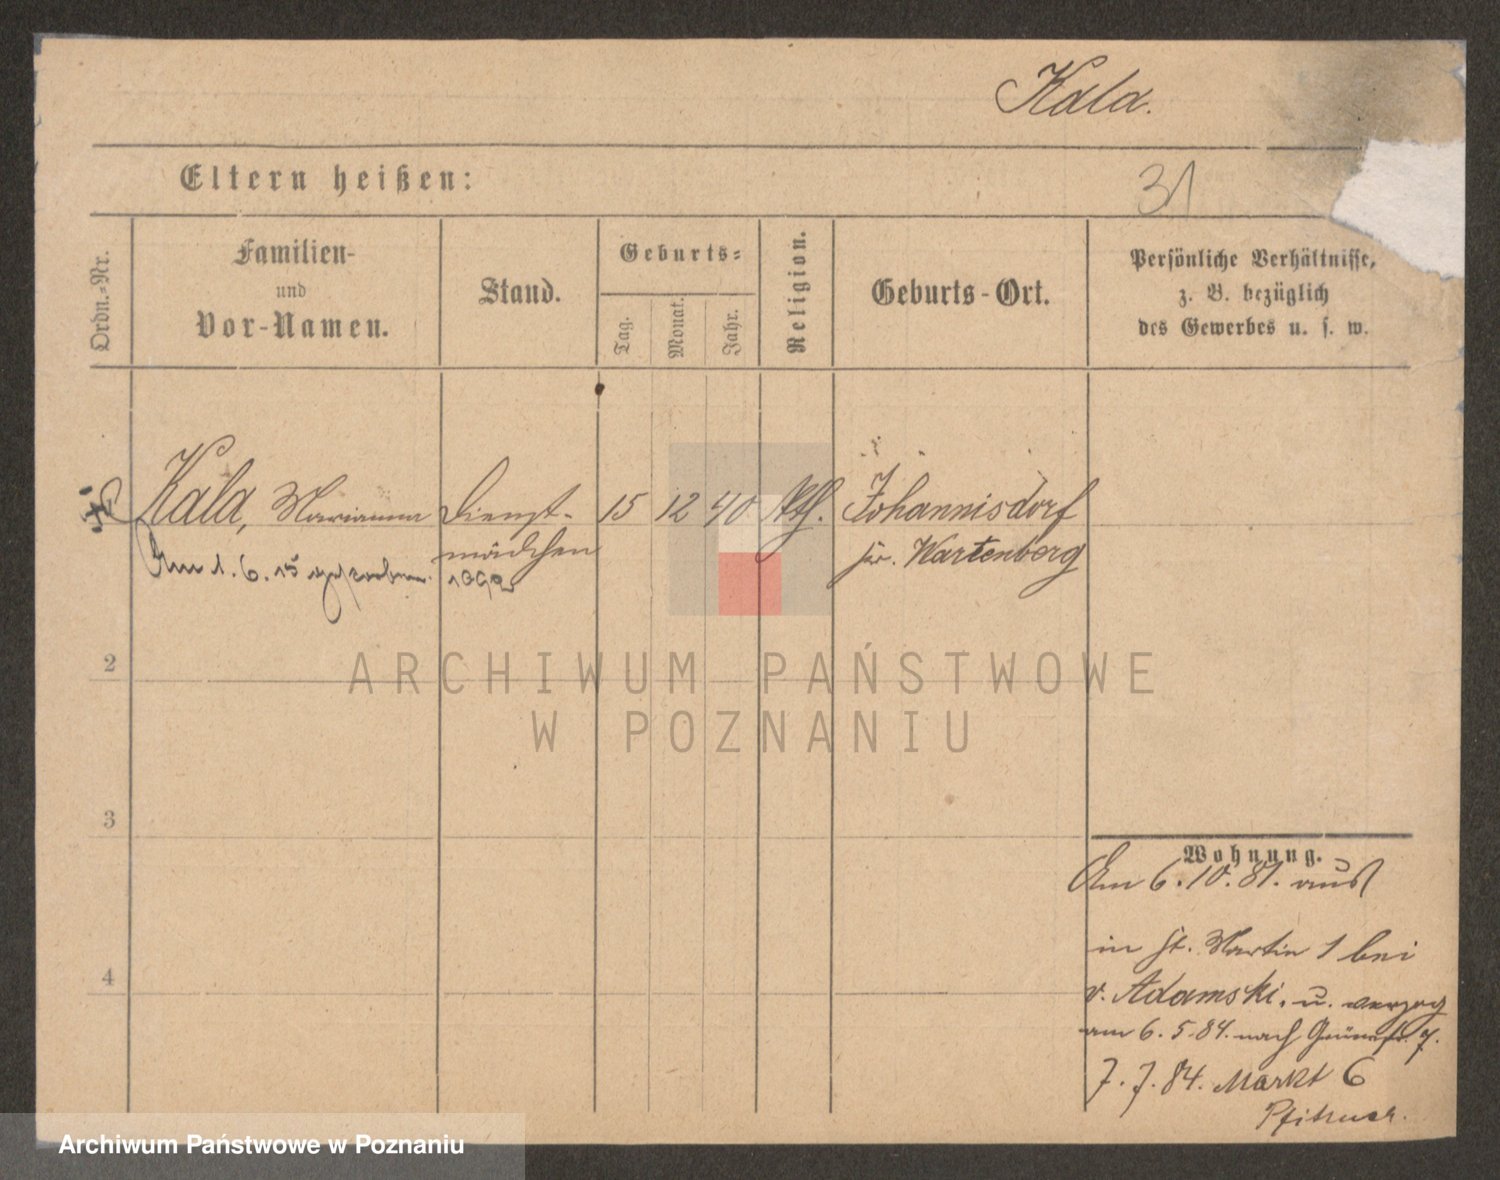 Kala.
Eltern heißen:
31
Ordn.-Nr.
Familien-
und
Vor-Namen.
Stand.
Geburts-
Tag.
Monat.
Jahr.
Religion.
Geburts-Ort.
Persönliche Verhältnisse,
z. B. bezüglich
des Gewerbes u. s. w.
Kala, Marianna
Dienst-
15 12 40
Kth.
Johannisdorf
Am 1. 6. 15 gestorben.
mädchen
Kr. Wartenberg
ARCHIWUM PAŃSTWOWE
W POZNANIU
2
3
4
Wohnung.
Am 6. 10. 81. aus
in St. Martin 1 bei
v. Adamski, u. verzog
am 6. 5. 84. nach Grünestr. 7.
7. 7. 84. Markt 6
Pfitzner.
Archiwum Państwowe w Poznaniu